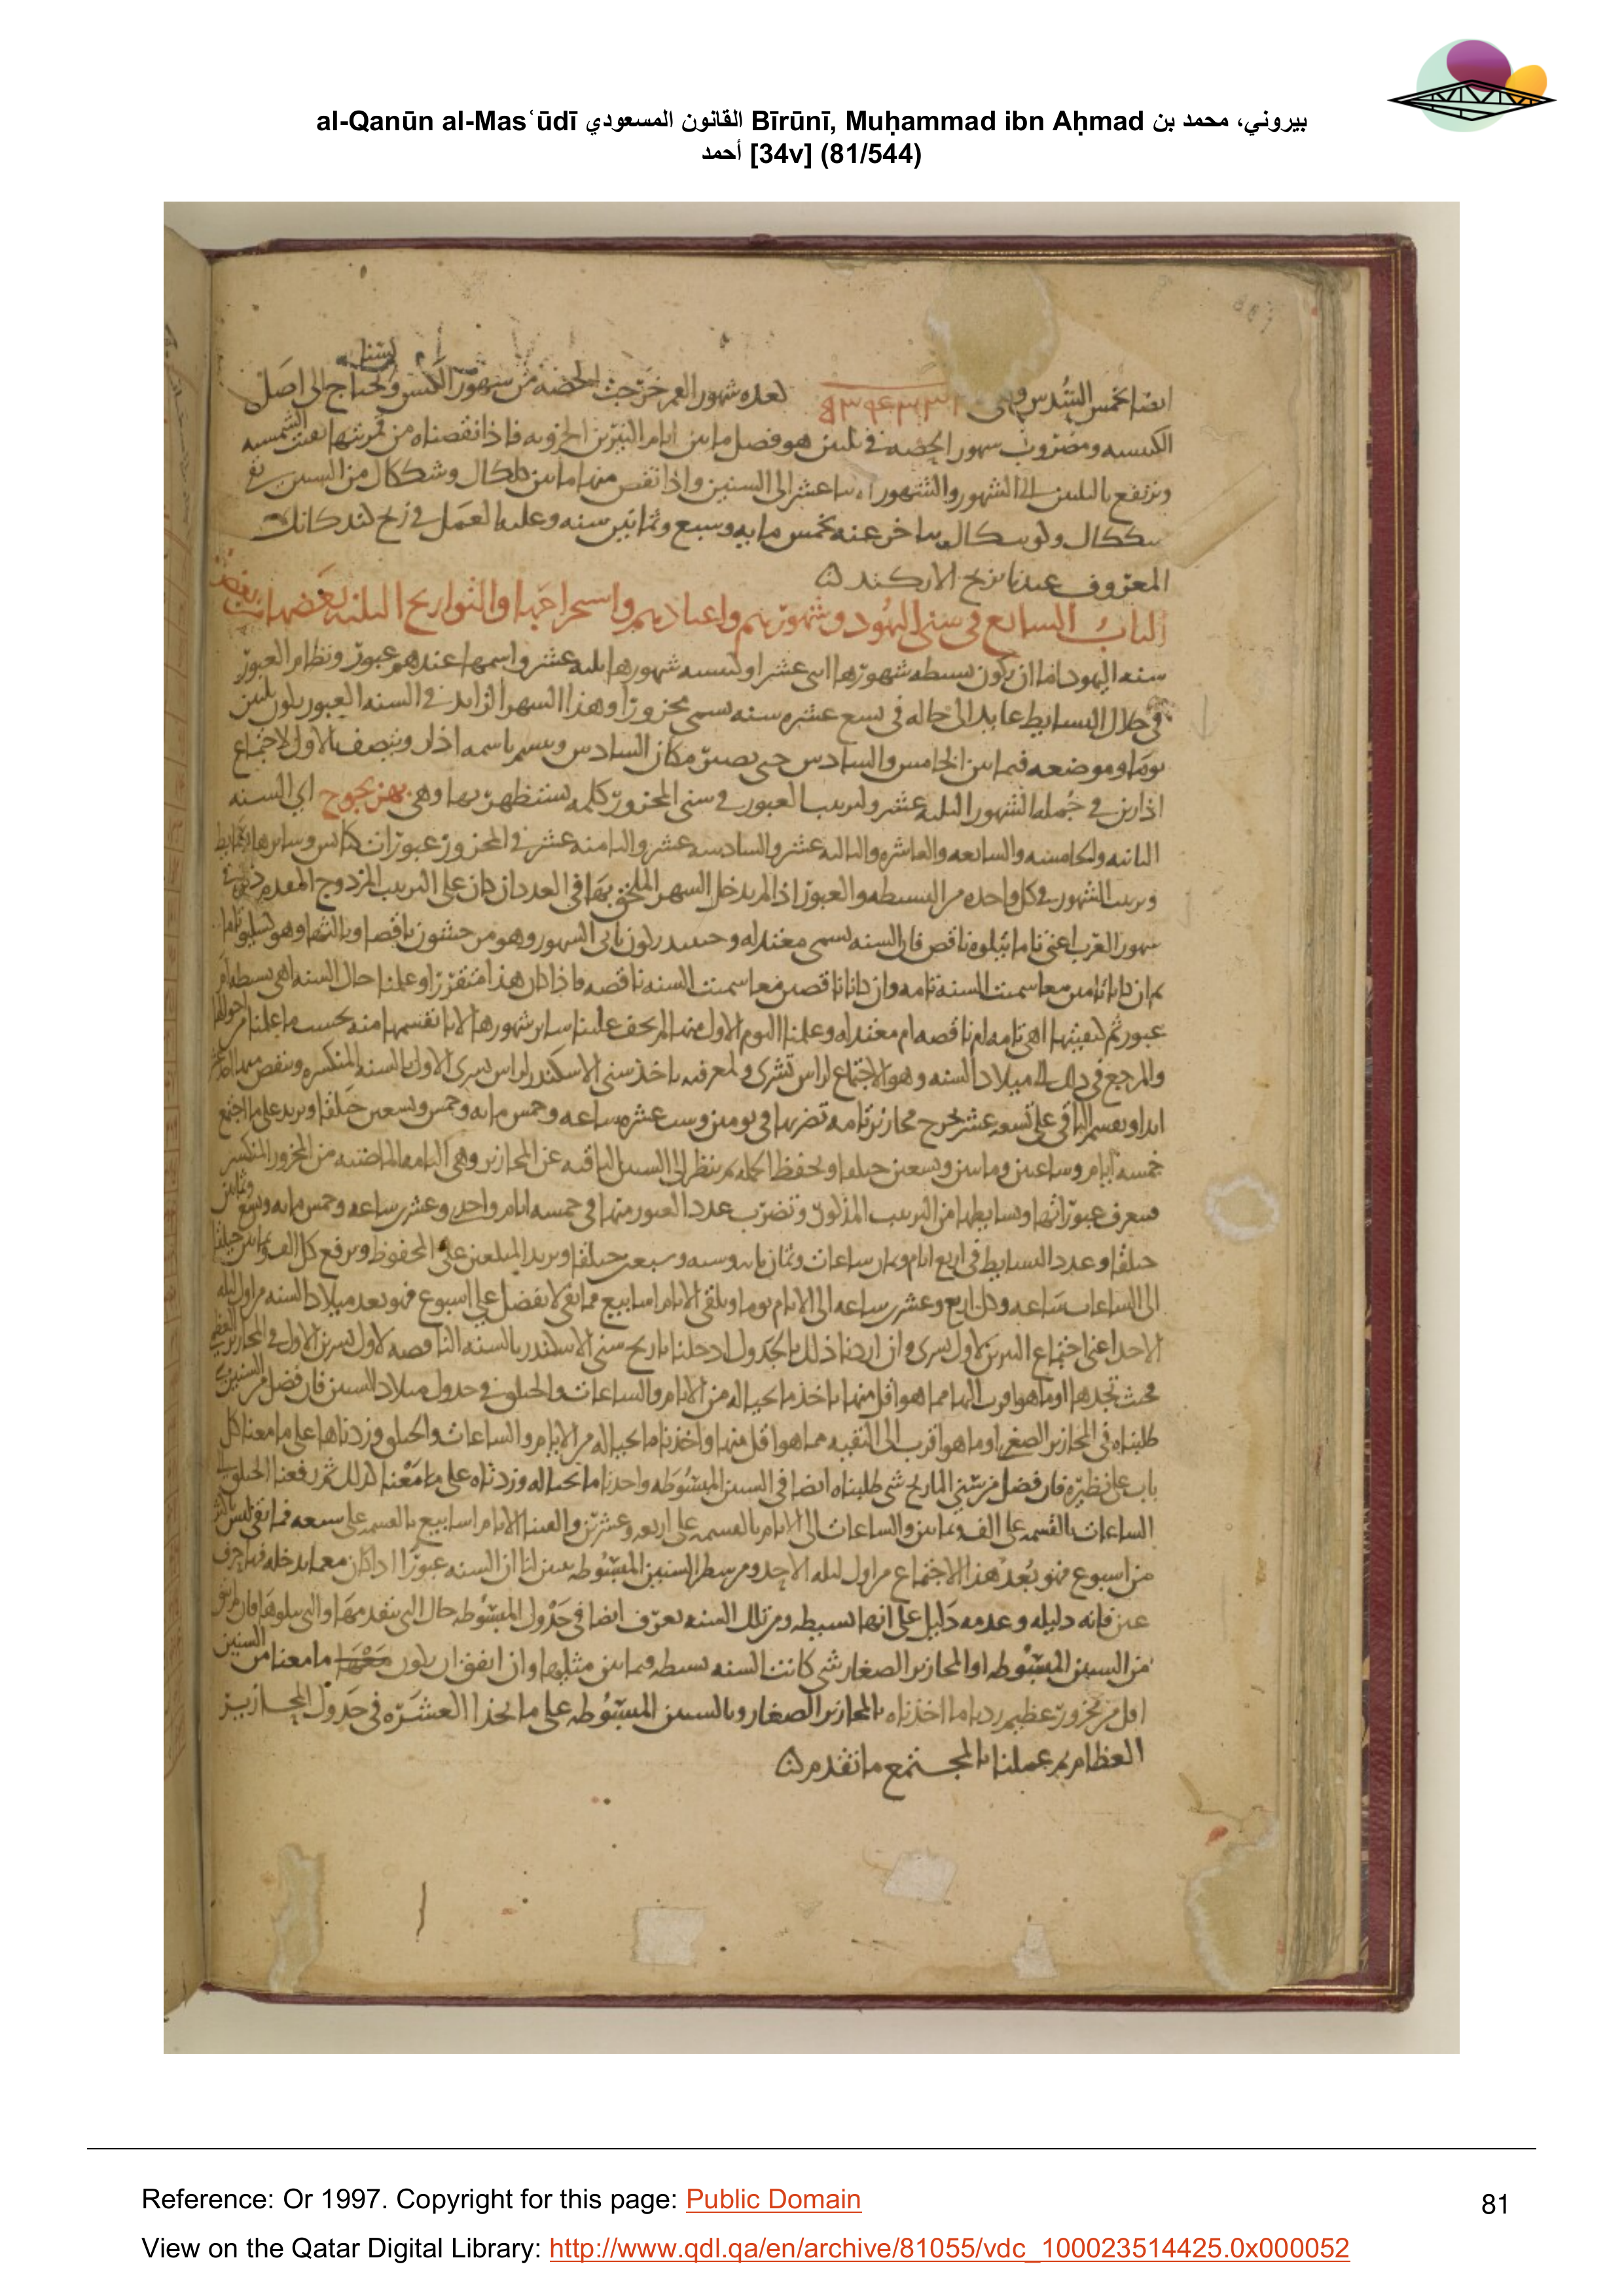 al-Qanūn al-Masʿūdī القانون المسعودي Bīrūnī, Muḥammad ibn Aḥmad بيروني، محمد بن
أحمد [34v] (81/544)
ايضا لخمس السدس وهى لعده شهور العمر خرجت الحصه من شهور الكبس ونحتاج الى اصل
الكبيسه ومضروب شهور الحصه فى ثلثين هو فضل ما بين ايام النيرين الجزويه فاذا نقصناه من قمريتها بقيت الشمسيه
وترتفع بالثلثين الى الشهور والشهور باثنا عشر الى السنين واذا نقص منها ما بين كلكال وشككال من السنين بقى
شككال ولوسكال يتاخر عنه بخمس مايه وسبع وثمانين سنه وعليه العمل فى زيج كندكاتك
المعروف عندنا بزيج الاركند
الباب السابع فى سنى اليهود وشهورهم واعيادهم واستخراجها والتواريخ الثلثه بعضها من بعض
سنه اليهود اما ان يكون بسيطه شهورها اثنى عشر او كبيسه شهورها ثلثه عشر واسمها عندهم عبور ونظام العبور
فى خلال البسايط عايد الى حاله فى تسع عشره سنه تسمى محزورا وهذا الشهر الزايد فى السنه العبور يكون ثلثين
يوما وموضعه فيما بين الخامس والسادس حتى يصير مكان السادس ويسم باسمه اذار ويتصف بالاول لاجتماع
اذارين فى جمله الشهور الثلثه عشر ولترتيب العبور فى سنى المحزور كلمه يستظهر بها وهى بهزيجوح اى السنه
الثانيه والخامسه والسابعه والعاشره والثالثه عشر والسادسه عشر والثامنه عشر فى المحزور عبورات كبايس وسايرها بسايط
وترتيب الشهور فى كل واحده من البسيطه والعبور اذا لم يدخل الشهر الملحق بها فى العدد ان كان على الترتيب المزدوج المعدم
شهور العرب اعنى تاما يتلوه ناقص فان السنه تسمى معتدله وحينئذ يكون ثانى الشهور وهو مرحشون ناقصا وثالثها وهو كسليو تاما
ثم ان كانا تامين معا سميت السنه تامه وان كانا ناقصين معا سميت السنه ناقصه فاذا كان هذا متقررا وعلمنا حال السنه اهى بسيطه ام
عبور ثم كيفيتها اهى تامه ام ناقصه ام معتدله وعلمنا اليوم الاول منها لم يخف علينا ساير شهورها الا بانقسمها منه بحسب ما علمنا من احوالها
والمرجع فى ذلك الى ميلاد السنه وهو الاجتماع لراس تشرى ولمعرفته ناخذ سنى الاسكندر لراس تشرى الاول بالسنه المنكسره وننقص منها
ابدا ويقسم الباقى على تسعه عشر يخرج محازير تامه نضربها فى يومين وست عشره ساعه وخمس مايه وخمس وتسعين حيلقا ونزيد على ما اجتمع
خمسه ايام وساعتين ومايتين وتسعين حيلقا ونحفظ الجمله ثم ننظر الى السنين الباقيه عن المحازير وهى التامه الماضيه من المحزور المنكسر
فنعرف عبوراتها وبسايطها من الترتيب المذكور ونضرب عدد العبور منها فى خمسه ايام واحدى وعشرين ساعه وخمس مايه وتسع وثمانين
حيلقا وعدد البسايط فى اربع ايام وثمان ساعات وثمان مايه وسته وسبعين حيلقا ونزيد المبلغين على المحفوظ ونرفع كل الف وثمانين حيلقا
الى الساعات ساعه وكل اربع وعشرين ساعه الى الايام يوما ونلقى الايام اسابيع فما بقى لا يفضل على اسبوع فهو بعد ميلاد السنه من اول ليله
الاحد اعنى اجتماع النيرين لاول تشرى وان اردنا ذلك بالجدول ادخلنا تاريخ سنى الاسكندر بالسنه الناقصه لاول تشرين الاول فى المحازير العظمى
بحيث نجدها او ما هو اقرب اليها مما هو اقل منها فناخذ ما بحياله من الايام والساعات والحيلق فى جدول ميلاد السنين فان فضل من السنين شى
طلبناه فى المحازير الصغرى او ما هو اقرب الى البقيه مما هو اقل منها واخذنا ما بحياله من الايام والساعات والحيلق وزدناها على ما معنا كل
باب على نظيره فان فضل من سنى التاريخ شى طلبناه ايضا فى السنين المبسوطه واخذنا ما بحياله وزدناه على ما معنا كذلك ثم رفعنا الحيلق
الساعات بالقسمه على الف وثمانين والساعات الى الايام بالقسمه على اربعه وعشرين والقينا الايام اسابيع بالقسمه على سبعه فما بقى ليس باكثر
من اسبوع فهو بعد هذا الاجتماع من اول ليله الاحد ومن سطر السنين المبسوطه يتبين لنا ان السنه عبور اذا كان معما يدخله فيها حرف
عين فانه دليله وعدمه دليل على انها بسيطه ومن تلك السنه نعرف ايضا فى جدول المبسوطه حال التى تتقدمها والتى يتلوها فان لم يبق
من السنين المبسوطه او المحازير الصغار شى كانت السنه بسيطه فيما بين مثليها وان اتفق ان يكون ما معنا من السنين
اقل من محزور عظيم زدنا ما اخذناه بالمحازير الصغار وبالسنين المبسوطه على ما بحذا العشره فى جدول المحازير
العظام ثم عملنا بالمجتمع ما تقدم
Reference: Or 1997. Copyright for this page: Public Domain
81
View on the Qatar Digital Library: http://www.qdl.qa/en/archive/81055/vdc_100023514425.0x000052